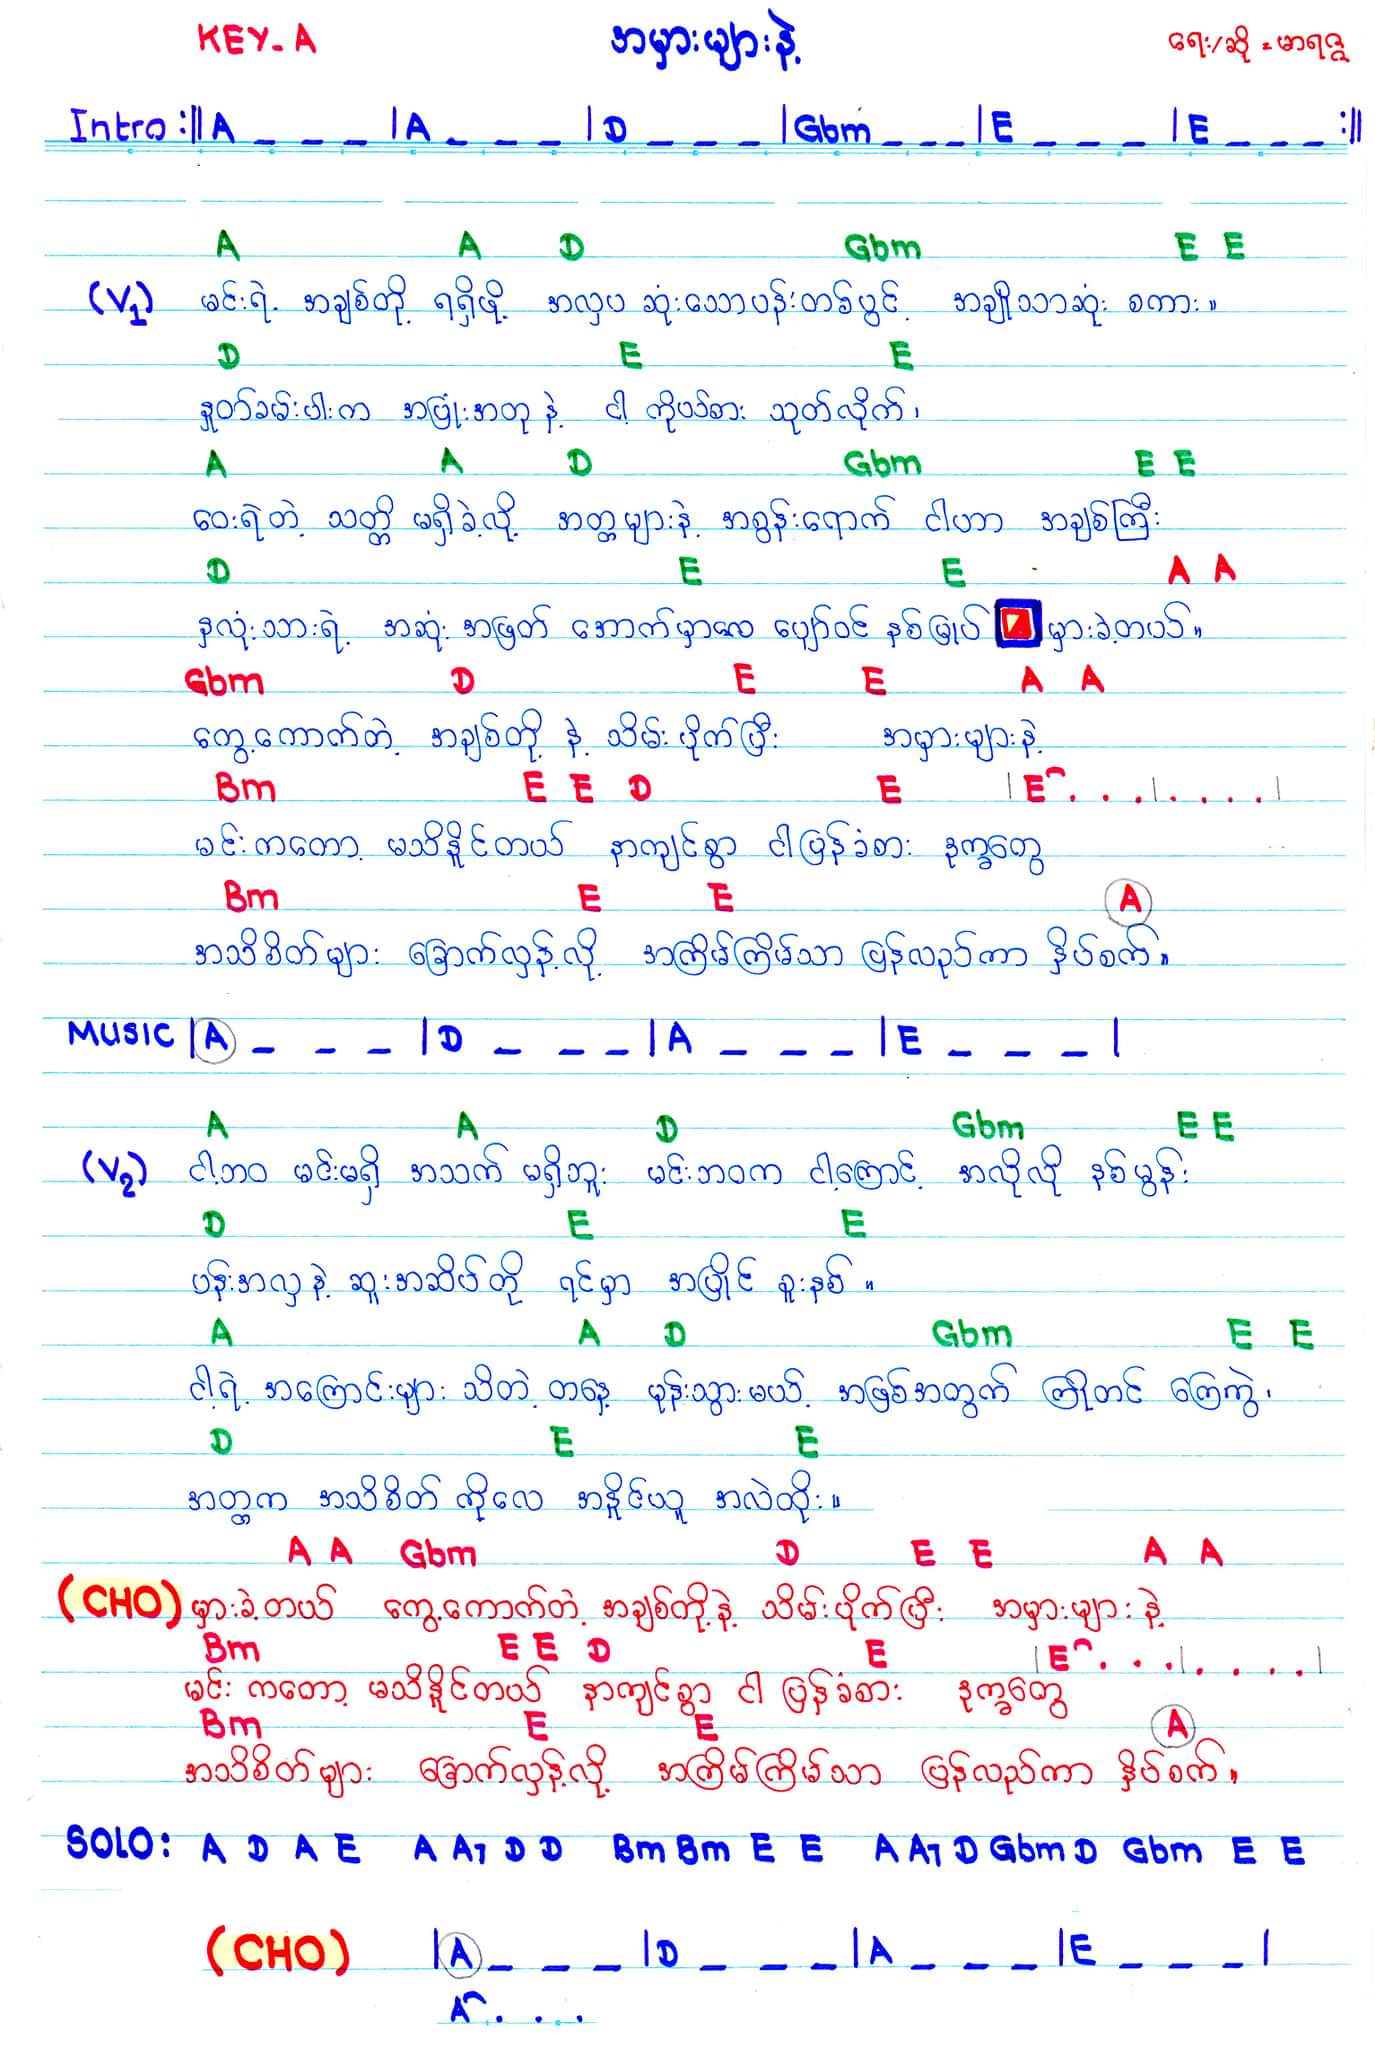 KEY-A
အမှားများနဲ့
ရေး/ဆို = မာရဇ္ဇ
Intro :|| A _ _ _ | A _ _ _ | D _ _ _ | Gbm _ _ _ | E _ _ _ | E _ _ _ :||
A A D Gbm E E
(V1) မင်းရဲ့ အချစ်တို့ ရရှိဖို့ အလှပ ဆုံးသောပန်းတစ်ပွင့် အချိုသာဆုံး စကား။
D E E
နှုတ်ခမ်းပါးက အပြုံးအတု နဲ့ ငါ့ ကိုယ်စား သုတ်လိုက်၊
A A D Gbm E E
ဝေးရဲတဲ့ သတ္တိ မရှိခဲ့လို့ အတ္တများနဲ့ အစွန်းရောက် ငါဟာ အချစ်ကြီး
D E E A A
နှလုံးသားရဲ့ အဆုံး အဖြတ် အောက်မှာလေ ပျော်ဝင် နစ်မြုပ် မှားခဲ့တယ်။
Gbm D E E A A
ကွေ့ကောက်တဲ့ အချစ်တို့ နဲ့ သိမ်း ပိုက်ပြီး အမှားများနဲ့
Bm E E D E | E . . . | . . . . |
မင်းကတော့ မသိနိူင်တယ် နာကျင်စွာ ငါပြန်ခံစား ဒုက္ခတွေ
Bm E E A
အသိစိတ်များ ခြောက်လှန့်လို့ အကြိမ်ကြိမ်သာ ပြန်လည်ကာ နှိပ်စက်။
MUSIC | A _ _ _ | D _ _ _ | A _ _ _ | E _ _ _ |
A A D Gbm E E
(V2) ငါ့ဘဝ မင်းမရှိ အသက် မရှိဘူး မင်းဘဝက ငါ့ကြောင့် အလိုလို နစ်မွန်း
D E E
ပန်းအလှ နဲ့ ဆူးအဆိပ်တို့ ရင်မှာ အပြိုင် စူးနစ် ။
A A D Gbm E E
ငါ့ရဲ့ အကြောင်းများ သိတဲ့ တနေ့ မုန်းသွားမယ့် အဖြစ်အတွက် ကြိုတင် ကြေကွဲ၊
D E E
အတ္တက အသိစိတ် ကိုလေ အနိူင်ယူ အလဲထိုး။
A A Gbm D E E A A
(CHO) မှားခဲ့တယ် ကွေ့ကောက်တဲ့ အချစ်တို့နဲ့ သိမ်းပိုက်ပြီး အမှားများ နဲ့
Bm E E D E | E . . . | . . . . |
မင်း ကတော့ မသိနိူင်တယ် နာကျင်စွာ ငါ ပြန်ခံစား ဒုက္ခတွေ
Bm E E A
အသိစိတ်များ ခြောက်လှန့်လို့ အကြိမ်ကြိမ်သာ ပြန်လည်ကာ နှိပ်စက်။
SOLO: A D A E A A7 D D Bm Bm E E A A7 D Gbm D Gbm E E
(CHO) | A _ _ _ | D _ _ _ | A _ _ _ | E _ _ _ |
A . . .